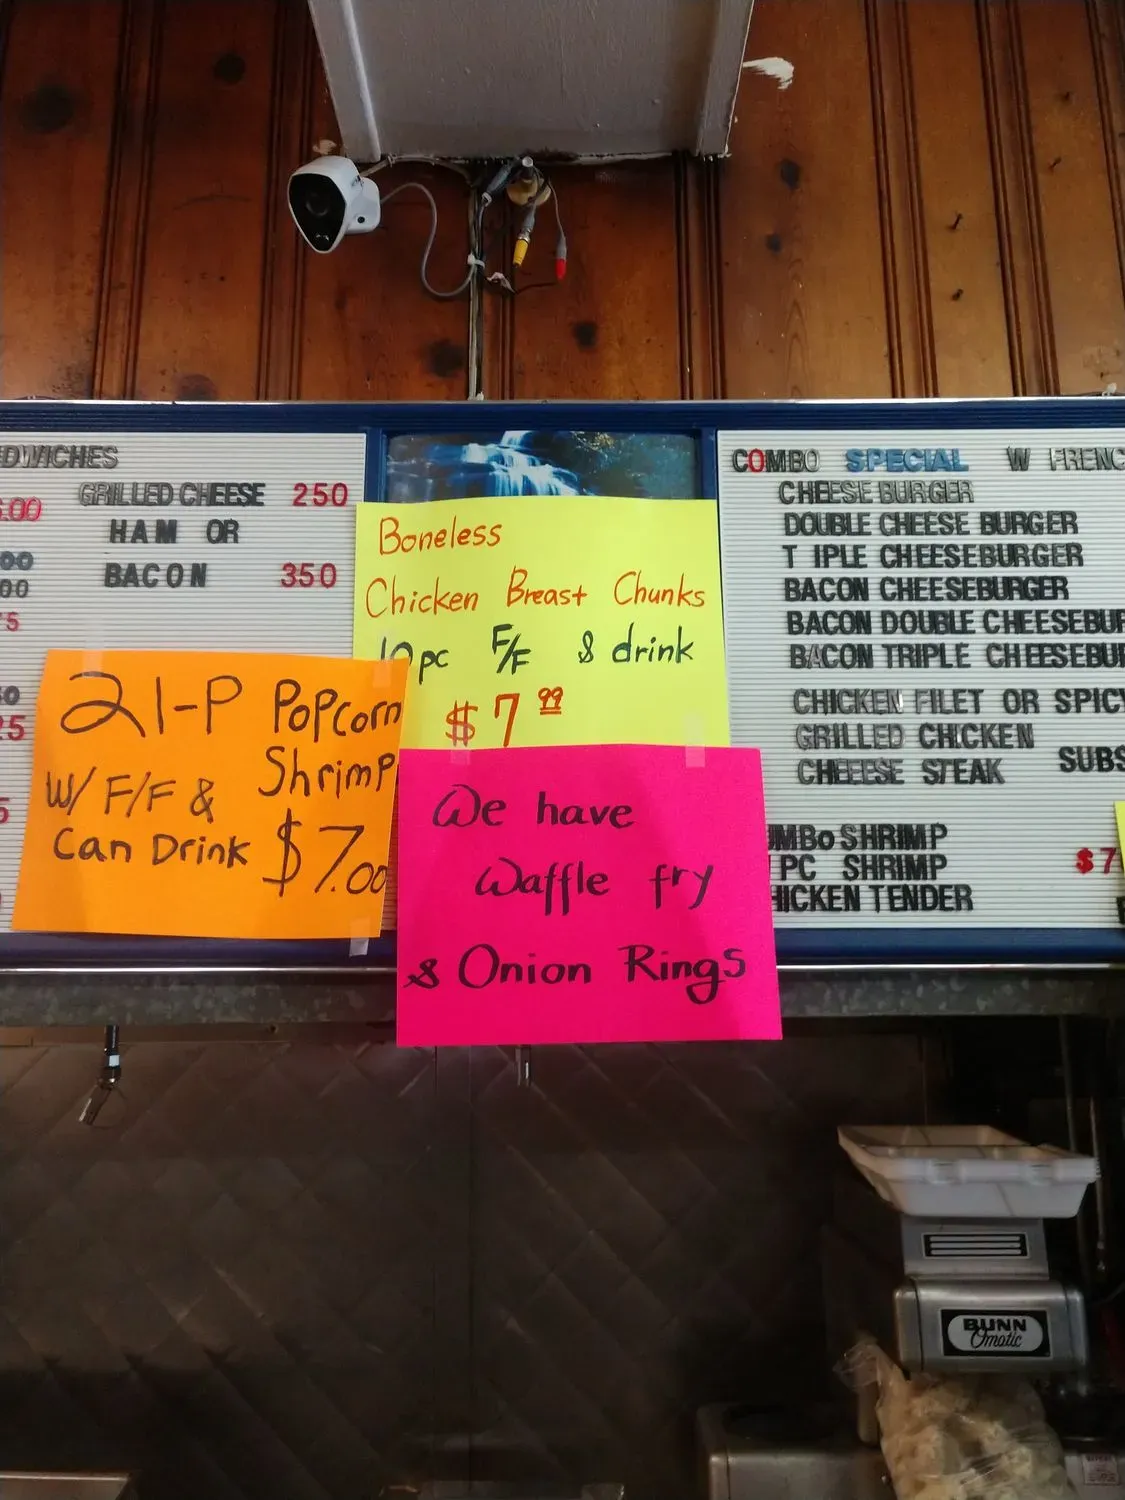 GRILLED CHEESE 250
HAM OR
BACON 350
Boneless
Chicken Breast Chunks
10pc F/F & drink
$7 99
21-P Popcorn
Shrimp
W/ F/F &
Can Drink $7.00
We have
Waffle fry
& Onion Rings
COMBO SPECIAL W
CHEESE BURGER
DOUBLE CHEESE BURGER
T IPLE CHEESEBURGER
BACON CHEESEBURGER
BACON DOUBLE
BACON TRIPLE
CHICKEN FILET OR
GRILLED CHICKEN
CHEEESE STEAK SUBS
SHRIMP
PC SHRIMP
TENDER
BUNN
Omatic